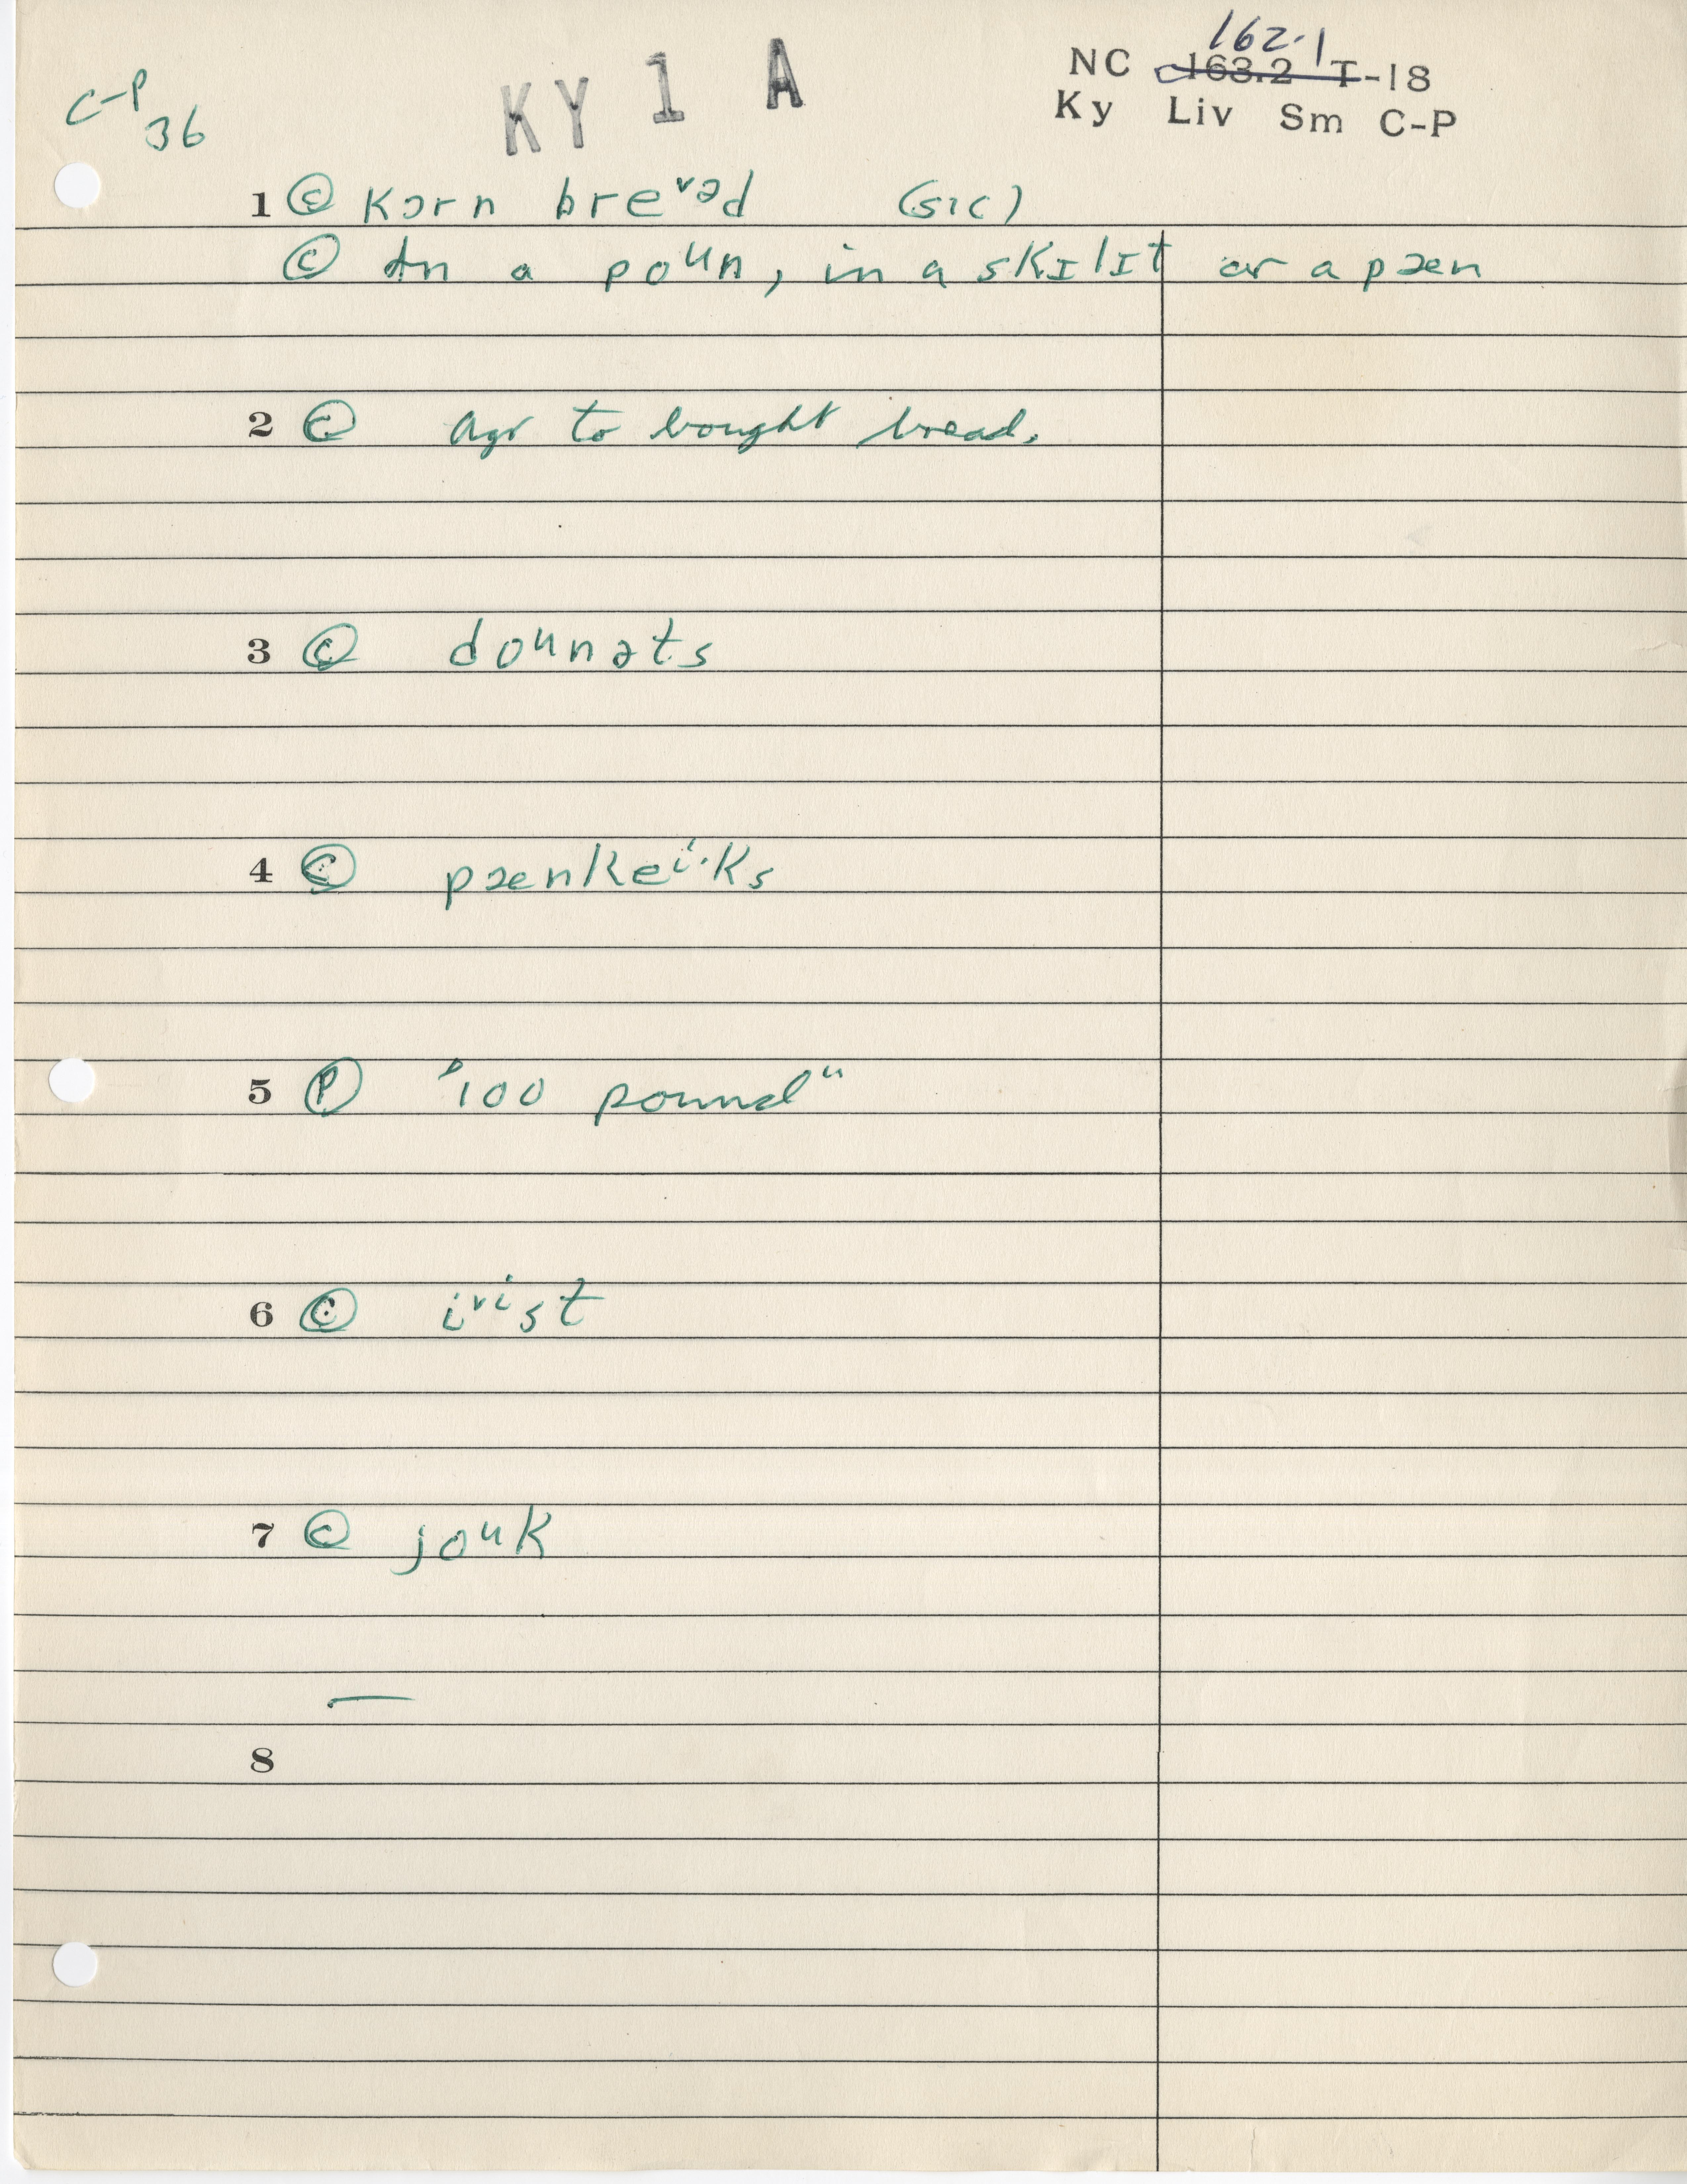 C-P
36
KY 1 A
162.1
NC 163.2 T-18
Ky Liv Sm C-P
1 Ⓒ kɔrn breᵛəd (sic)
Ⓒ In a poᵘn, in a skɪlɪt or a pæn
2 Ⓒ agr to bought bread.
3 Ⓒ doᵘnəts
4 Ⓒ pænkeⁱ·ks
5 Ⓟ "100 pound"
6 Ⓒ iᵛⁱst
7 Ⓒ joᵘk
—
8